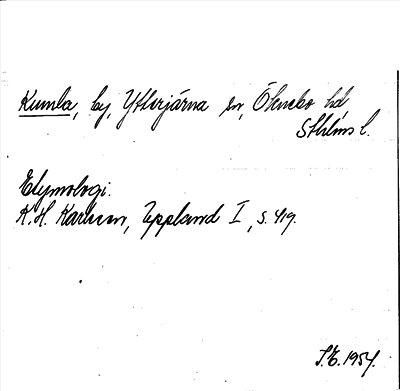 Kumla, by, Ytterjärna sn, Öknebo hd
Sthlms l.
Etymologi.
K.H. Karlsson, Uppland I, s. 419.
S.E. 1954.